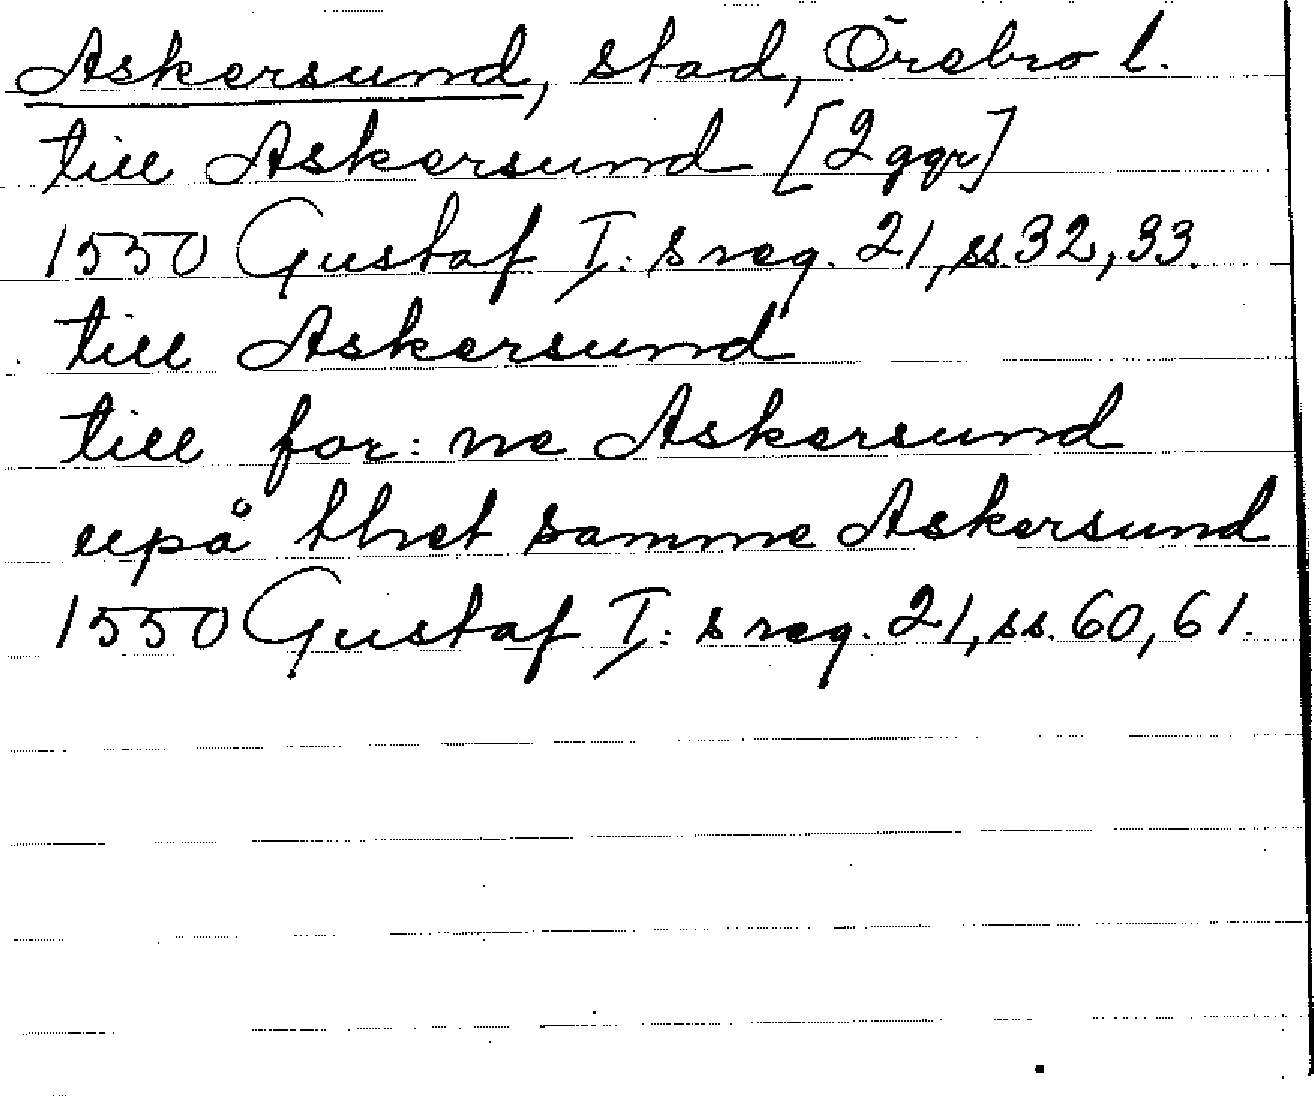 Askersund, stad, Örebro l.
till Askersund [2 ggr]
1550 Gustaf I: s reg. 21, ss. 32, 33.
till Askersund
till for: ne Askersund
upå thet samme Askersund
1550 Gustaf I: s reg. 21, ss. 60, 61.